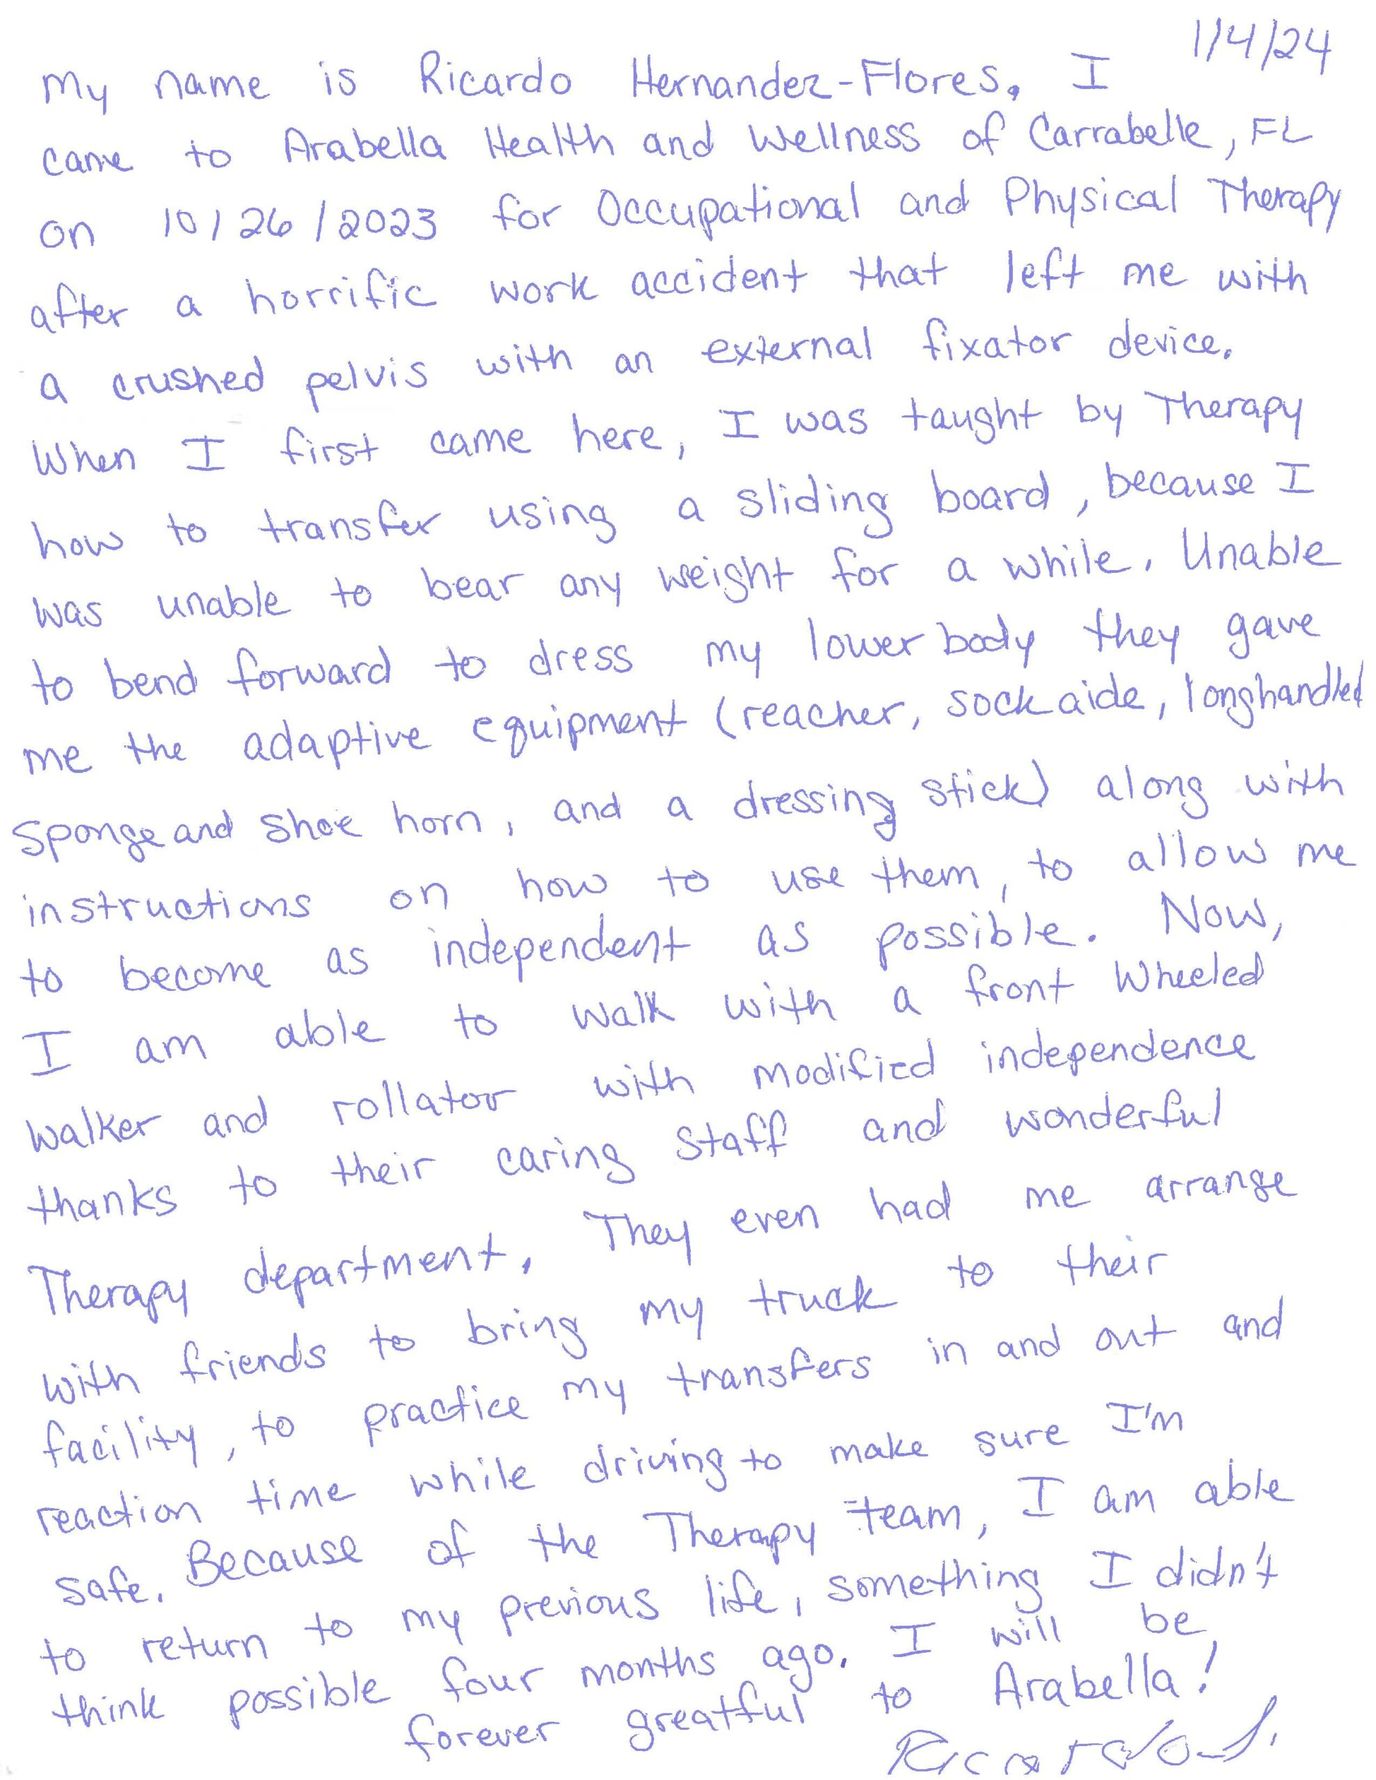 1/4/24
My name is Ricardo Hernandez-Flores. I
came to Arabella Health and Wellness of Carrabelle, FL
on 10/26/2023 for Occupational and Physical Therapy
after a horrific work accident that left me with
a crushed pelvis with an external fixator device.
When I first came here, I was taught by Therapy
how to transfer using a sliding board, because I
was unable to bear any weight for a while. Unable
to bend forward to dress my lower body they gave
me the adaptive equipment (reacher, sock aide, longhandled
sponge and shoe horn, and a dressing stick) along with
instructions on how to use them, to allow me
to become as independent as possible. Now,
I am able to walk with a front wheeled
walker and rollator with modified independence
thanks to their caring staff and wonderful
Therapy department. They even had me arrange
with friends to bring my truck to their
facility, to practice my transfers in and out and
reaction time while driving to make sure I'm
safe. Because of the Therapy team, I am able
to return to my previous life, something I didn't
think possible four months ago. I will be
forever greatful to Arabella!
Ricardo